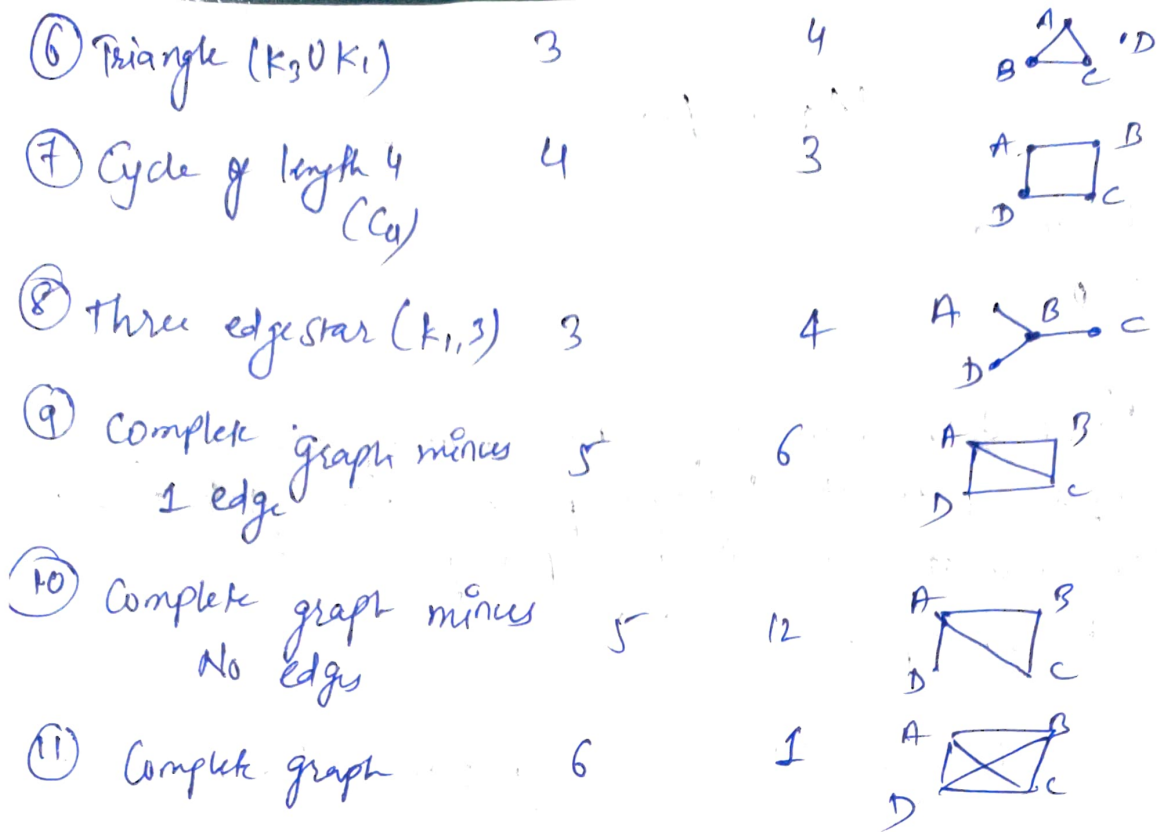 ⑥ Triangle (K₃UK₁) 3 4 A B C D
⑦ Cycle of length 4 4 3 A B
(C₄) D C
⑧ Three edge star (K₁,3) 3 4 A B C
D
⑨ Complete graph minus 5 6 A B
1 edge D C
⑩ Complete graph minus 5 12 A B
No edges D C
⑪ Complete graph 6 1 A B
D C